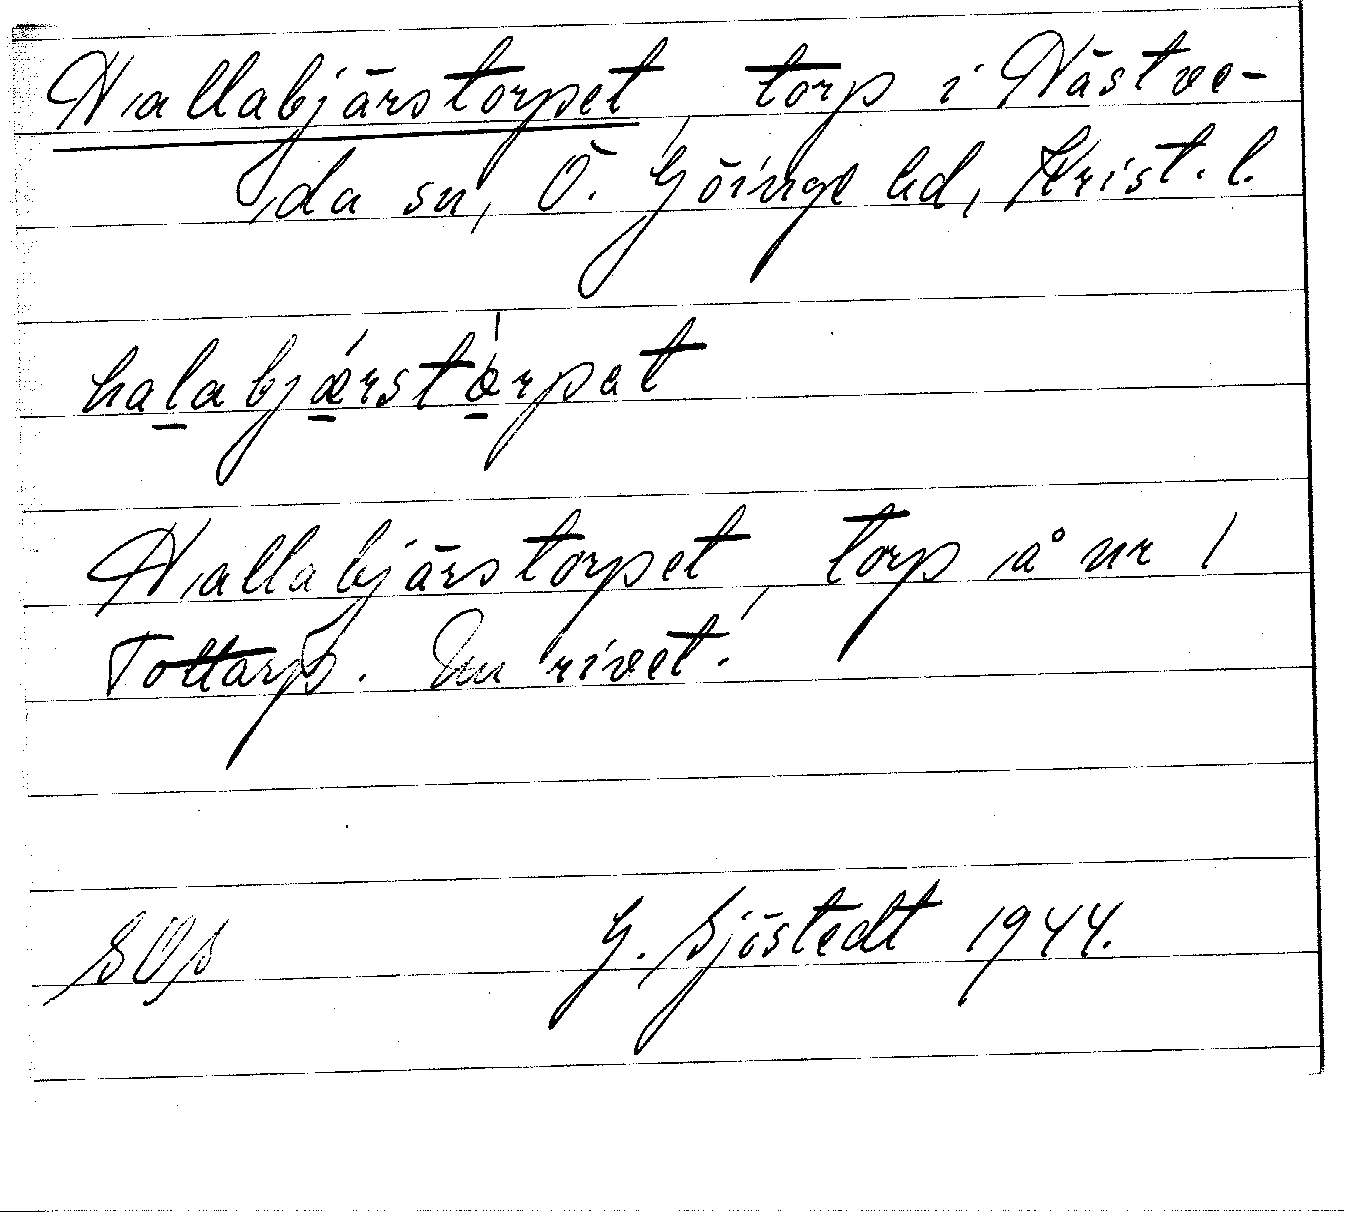 Hallabjärstorpet, torp i Västve-
da sn, Ö. Göinge hd, Krist. l.
halabjærstærpat
Hallabjärstorpet, torp å nr 1
Tottarp. Nu rivet.
SOS G. Sjöstedt 1944.